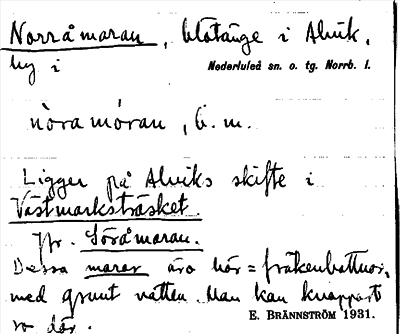 Norråmaran, blötänge i Alvik,
by i Nederluleå sn. o. tg. Norrb. l.
nòramóran, b. m.
Ligger på Alviks skifte i
Västmarksträsket.
Jfr. Söråmaran.
Dessa marar äro hör = fräkenbottnar,
med grunt vatten. Man kan knappast
ro där.
E. BRÄNNSTRÖM 1931.